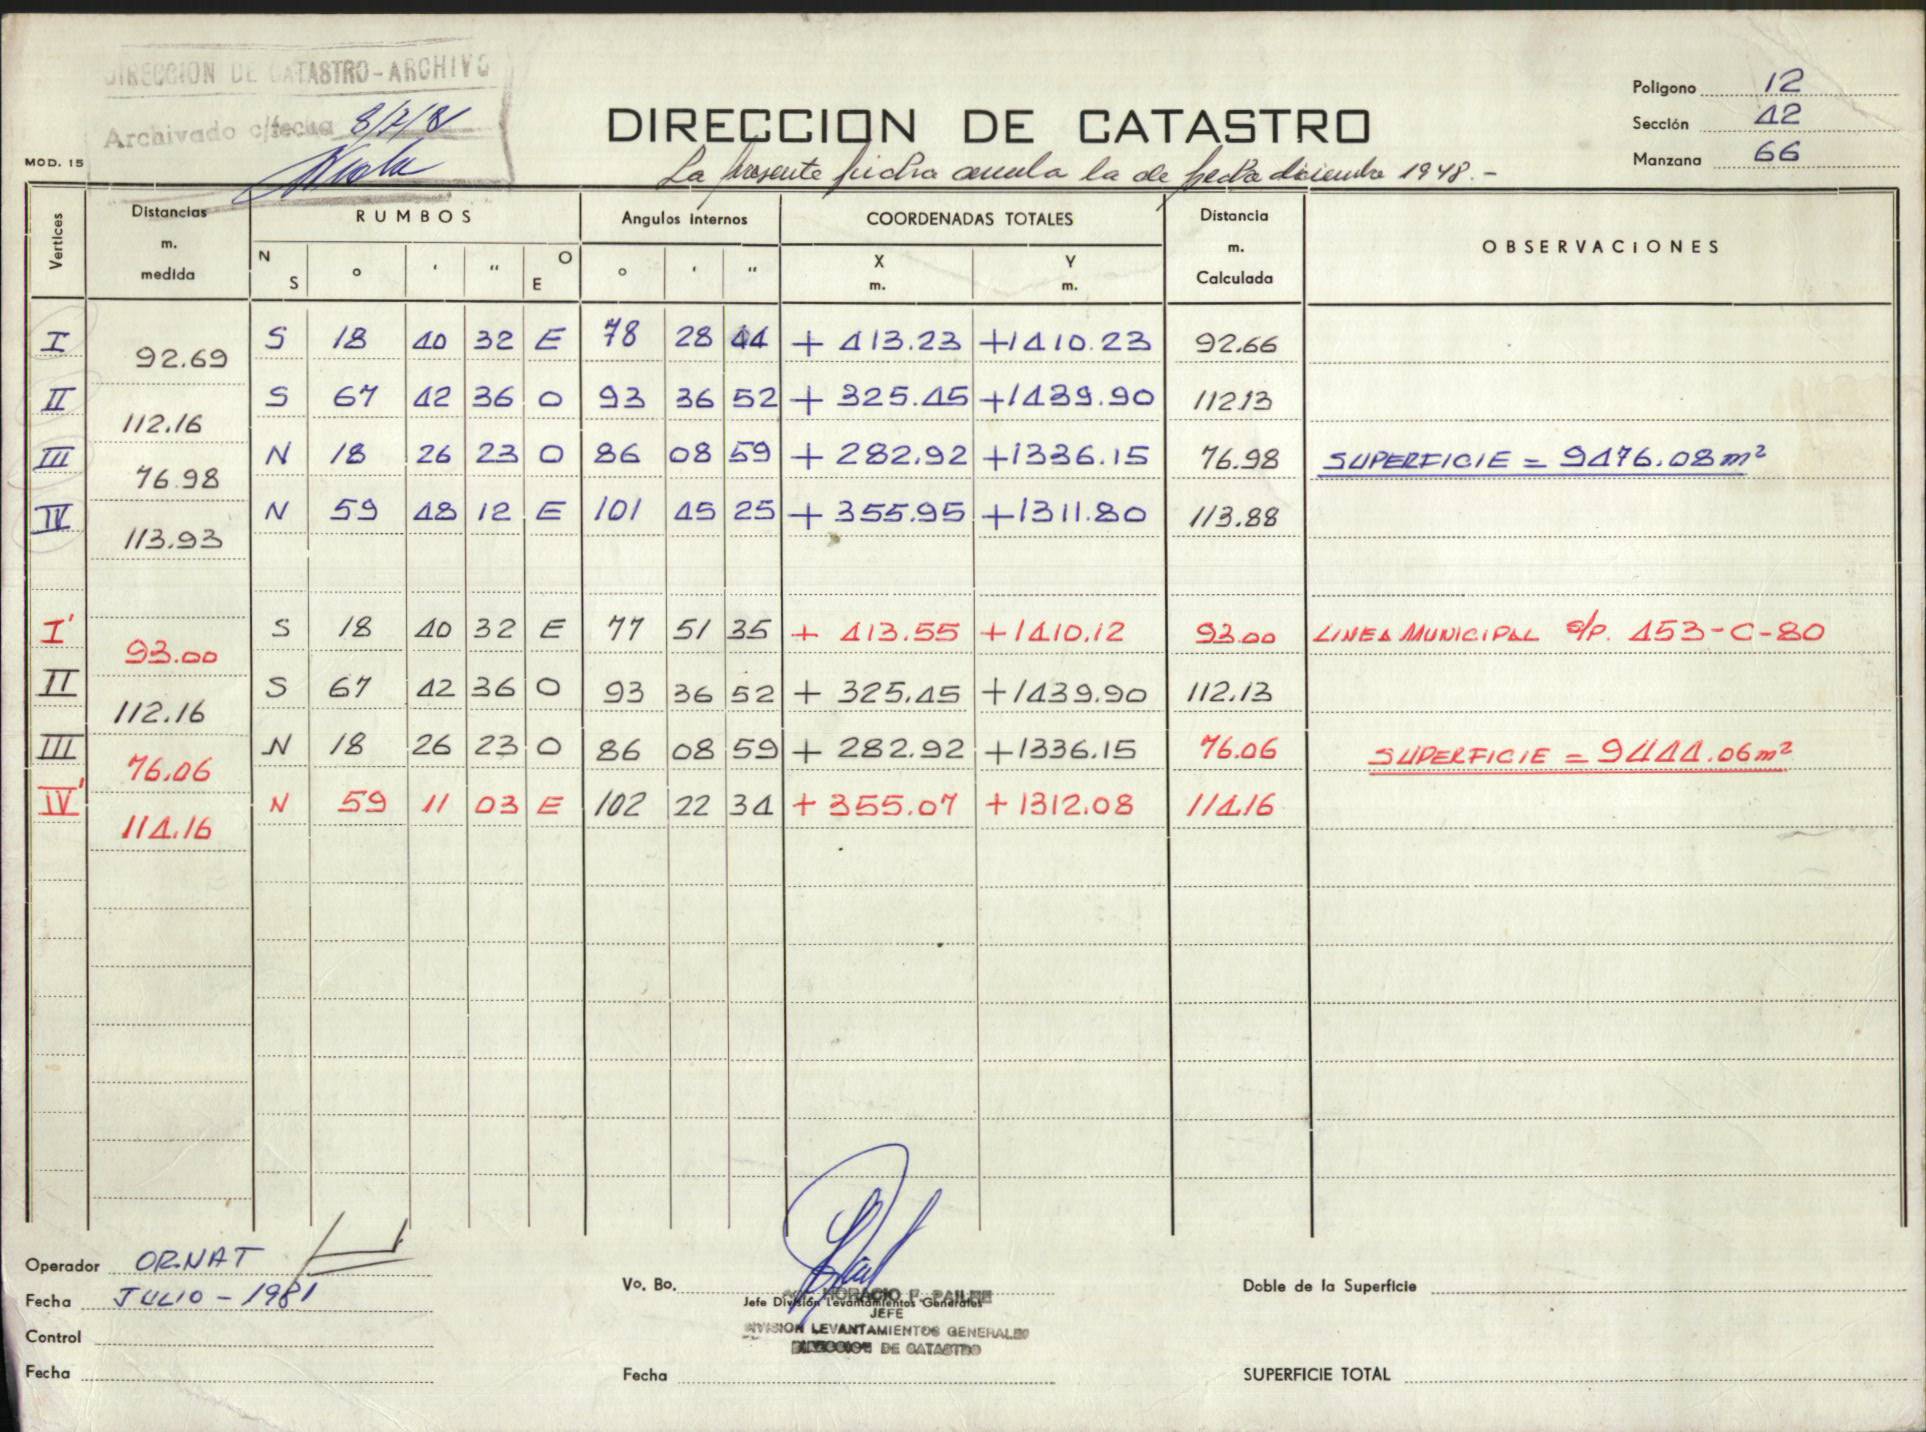 DIRECCION DE CATASTRO-ARCHIVO
Archivado c/fecha 8/7/81
MOD. 15
DIRECCION DE CATASTRO
La presente ficha anula la de fecha diciembre 1948.-
Poligono 12
Sección 42
Manzana 66
Vertices Distancias m. medida RUMBOS Angulos internos COORDENADAS TOTALES Distancia m. Calculada OBSERVACIONES
N S ° ' " O E ° ' " X m. Y m.
I 92.69 S 18 40 32 E 78 28 44 + 413.23 +1410.23 92.66
II 112.16 S 67 42 36 O 93 36 52 + 325.45 +1439.90 112.13
III 76.98 N 18 26 23 O 86 08 59 + 282.92 +1336.15 76.98 SUPERFICIE = 9476.08 m²
IV 113.93 N 59 48 12 E 101 45 25 + 355.95 +1311.80 113.88
I' 93.00 S 18 40 32 E 77 51 35 + 413.55 +1410.12 93.00 LINEA MUNICIPAL s/p. 453-C-80
II 112.16 S 67 42 36 O 93 36 52 + 325.45 +1439.90 112.13
III 76.06 N 18 26 23 O 86 08 59 + 282.92 +1336.15 76.06 SUPERFICIE = 9444.06 m²
IV' 114.16 N 59 11 03 E 102 22 34 + 355.07 +1312.08 114.16
Operador ORNAT
Fecha JULIO - 1981
Control
Fecha
Vo. Bo.
HORACIO F.
Jefe División Levantamientos Generales
JEFE
DIVISION LEVANTAMIENTOS GENERALES
DIRECCION DE CATASTRO
Fecha
Doble de la Superficie
SUPERFICIE TOTAL